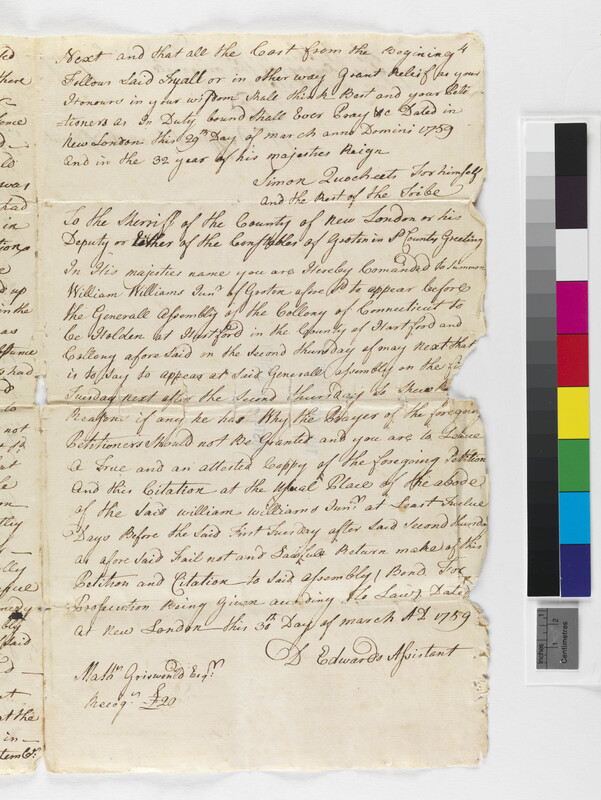 Next and that all the Cost from the Begining
Follow Said Tryall or in other way Grant Relief as your
Honours in your wisdom Shall think Best and your Peti-
-tioners as In Duty bound Shall Ever Pray &c Dated in
New London this 29th Day of march anno Domini 1759
and in the 32 year of his majesties Reign
Simon Quocheets For himself
and the Rest of the Tribe
To the Sherriff of the County of New London or his
Deputy or Either of the Constables of Groton in sd County Greeting
In His majesties name you are Hereby Comanded to Summon
William Williams Junr of Groton afore sd to appear before
the Generall Assembly of the Collony of Connecticut to
be Holden at Hartford in the County of Hartford and
Collony afore Said in the Second thursday of may Next that
is to Say to appear at Said Generall assembly on the
Tuesday next after the Second thursday to Shew
Reason if any he has Why the Prayer of the foregoing
Petitioners Should not Be Granted and you are to Leave
a True and an attested Coppy of the foregoing Petition
And this Citation at the Usual Place of the abode
of the Said william williams Junr at Least Twelve
Days Before the Said First Tuesday after Said Second thursday
as afore Said Fail not and Lawfull Return make of this
Petition and Citation to Said assembly Bond For
Prosecution Being Given according to Law Dated
at New London this 30th Day of march AD 1759
D Edwards Assistant
Mathw Griswould Esqr
Recogn £20
Inches
Centimetres